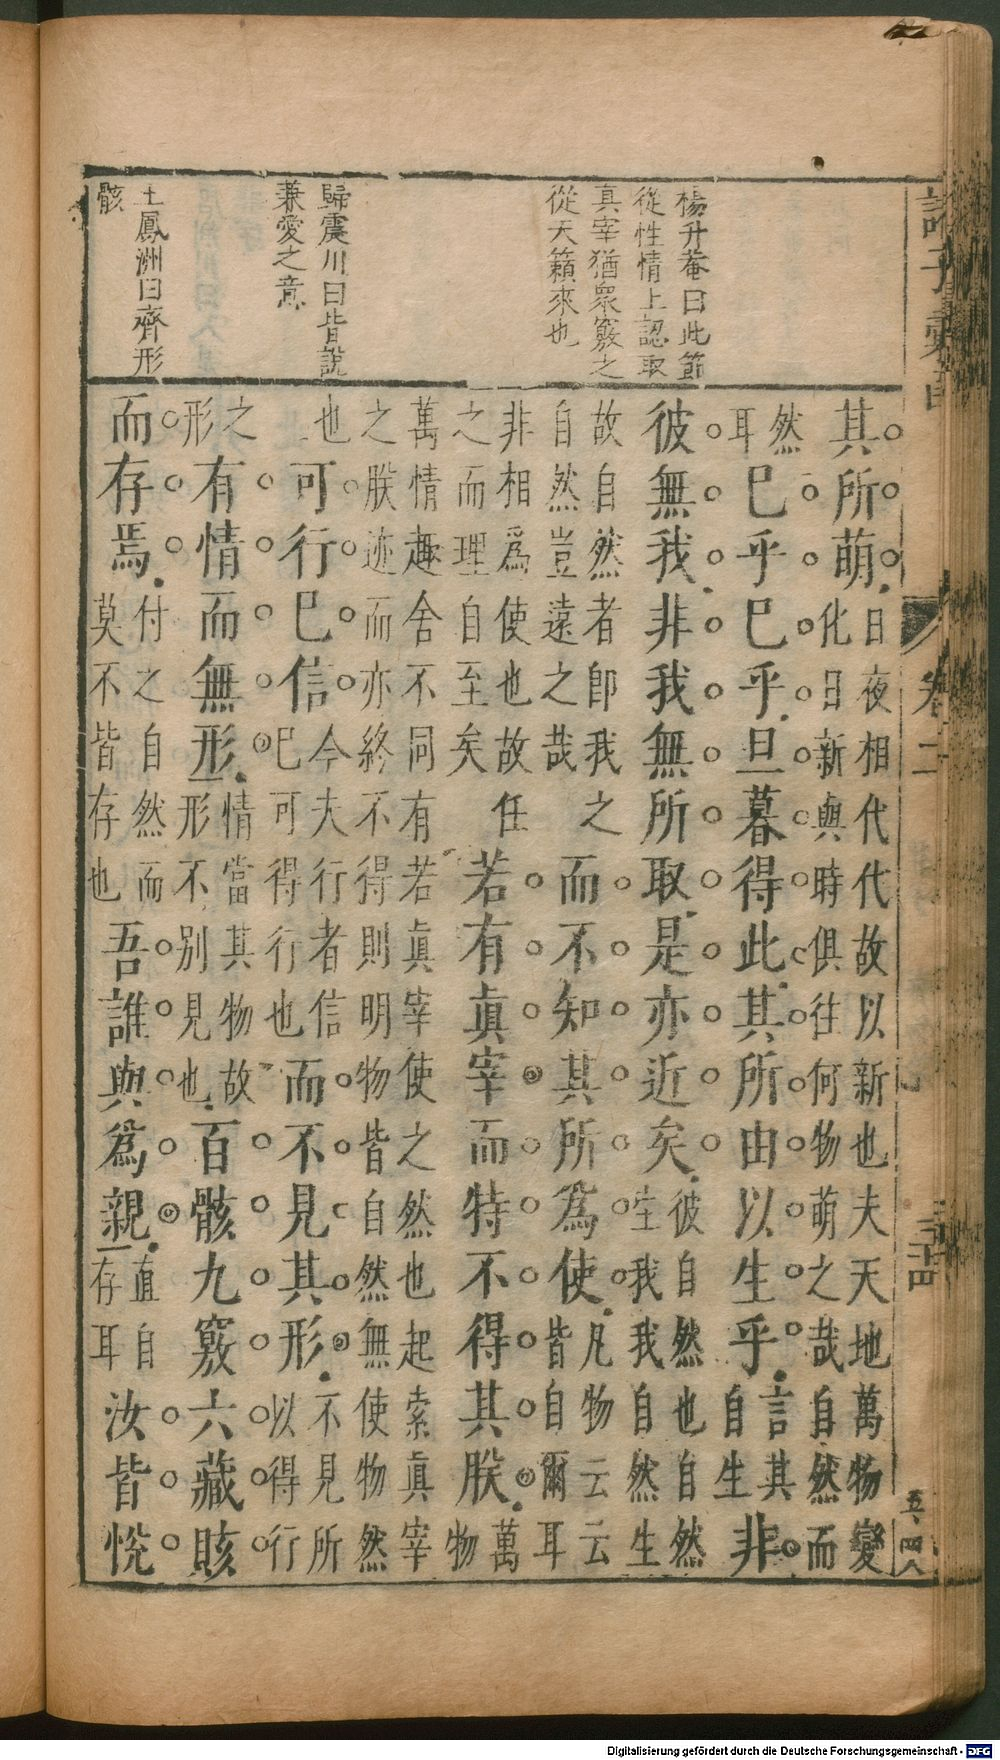 諸子彙函
卷二
三十四
五四八
楊升菴曰此節
從性情上認取
真宰猶衆竅之
從天籟來也
歸震川曰皆說
兼愛之意
王鳳洲曰齊形
骸
其所萌日夜相代代故以新也夫天地萬物變化日新與時俱往何物萌之哉自然而
然耳巳乎巳乎旦暮得此其所由以生乎言其自生非
彼無我非我無所取是亦近矣彼自然也自然生我我自然生
故自然者即我之自然豈遠之哉而不知其所爲使凡物云云皆自爾耳
非相爲使也故任之而理自至矣若有眞宰而特不得其朕萬物
萬情趣舍不同有若眞宰使之然也起索眞宰之朕迹而亦終不得則明物皆自然無使物然
也可行巳信今夫行者信巳可得行也而不見其形不見所以得行
之形有情而無形情當其物故形不別見也百骸九竅六藏賅
而存焉付之自然而莫不皆存也吾誰與爲親直自存耳汝皆悅
Digitalisierung gefördert durch die Deutsche Forschungsgemeinschaft - DFG